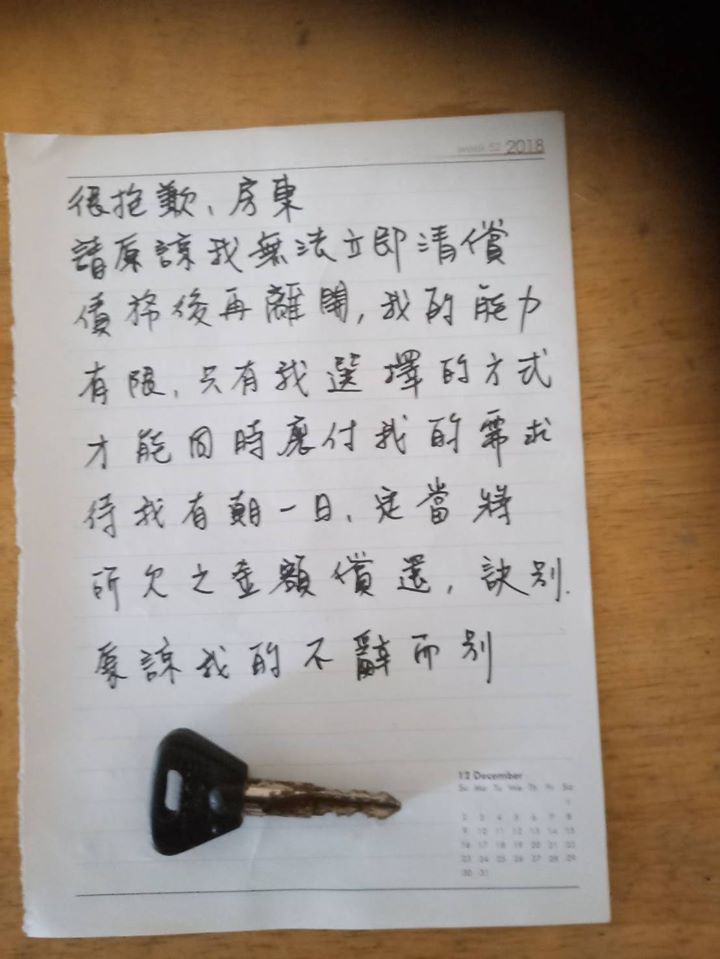 week 52 2018
很抱歉、房東
請原諒我無法立即清償
債務後再離開,我的能力
有限、只有我選擇的方式
才能同時應付我的需求
待我有朝一日、定當將
所欠之金額償還,訣別.
原諒我的不辭而別
12 December
Su Mo Tu We Th Fr Sa
1
2 3 4 5 6 7 8
9 10 11 12 13 14 15
16 17 18 19 20 21 22
23 24 25 26 27 28 29
30 31